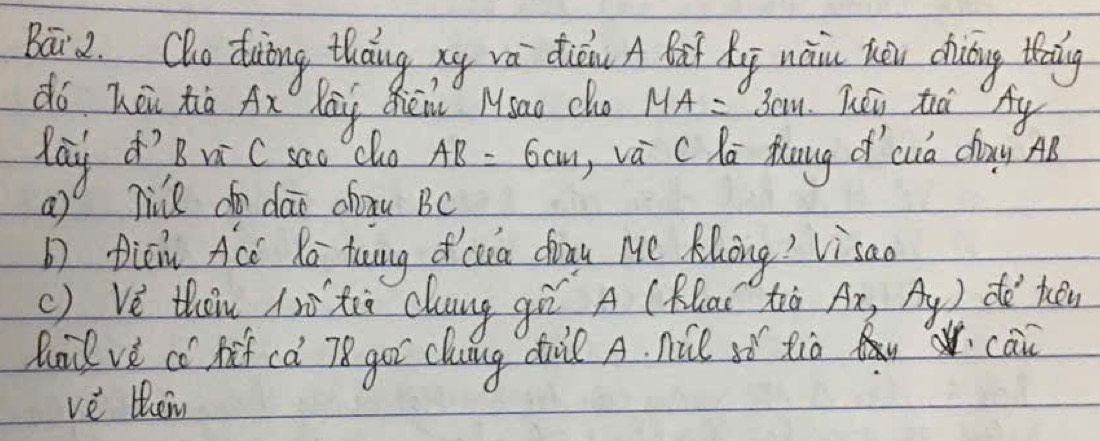 Bài 2. Cho đường thẳng xy và điểm A bất kỳ nằm trên đường thẳng
đó. Trên tia Ax lấy điểm M sao cho MA = 3cm. Trên tia Ay
lấy đ' B và C sao cho AB = 6cm, và C là trung đ' của đoạn AB
a) Tính độ dài đoạn BC
b) Điểm A có là trung đ' của đoạn MC không? Vì sao
c) Vẽ thêm 1 số tia chung gốc A (khác tia Ax, Ay) để trên
hình vẽ có tất cả 78 góc chung đỉnh A. Tính số tia cần
vẽ thêm